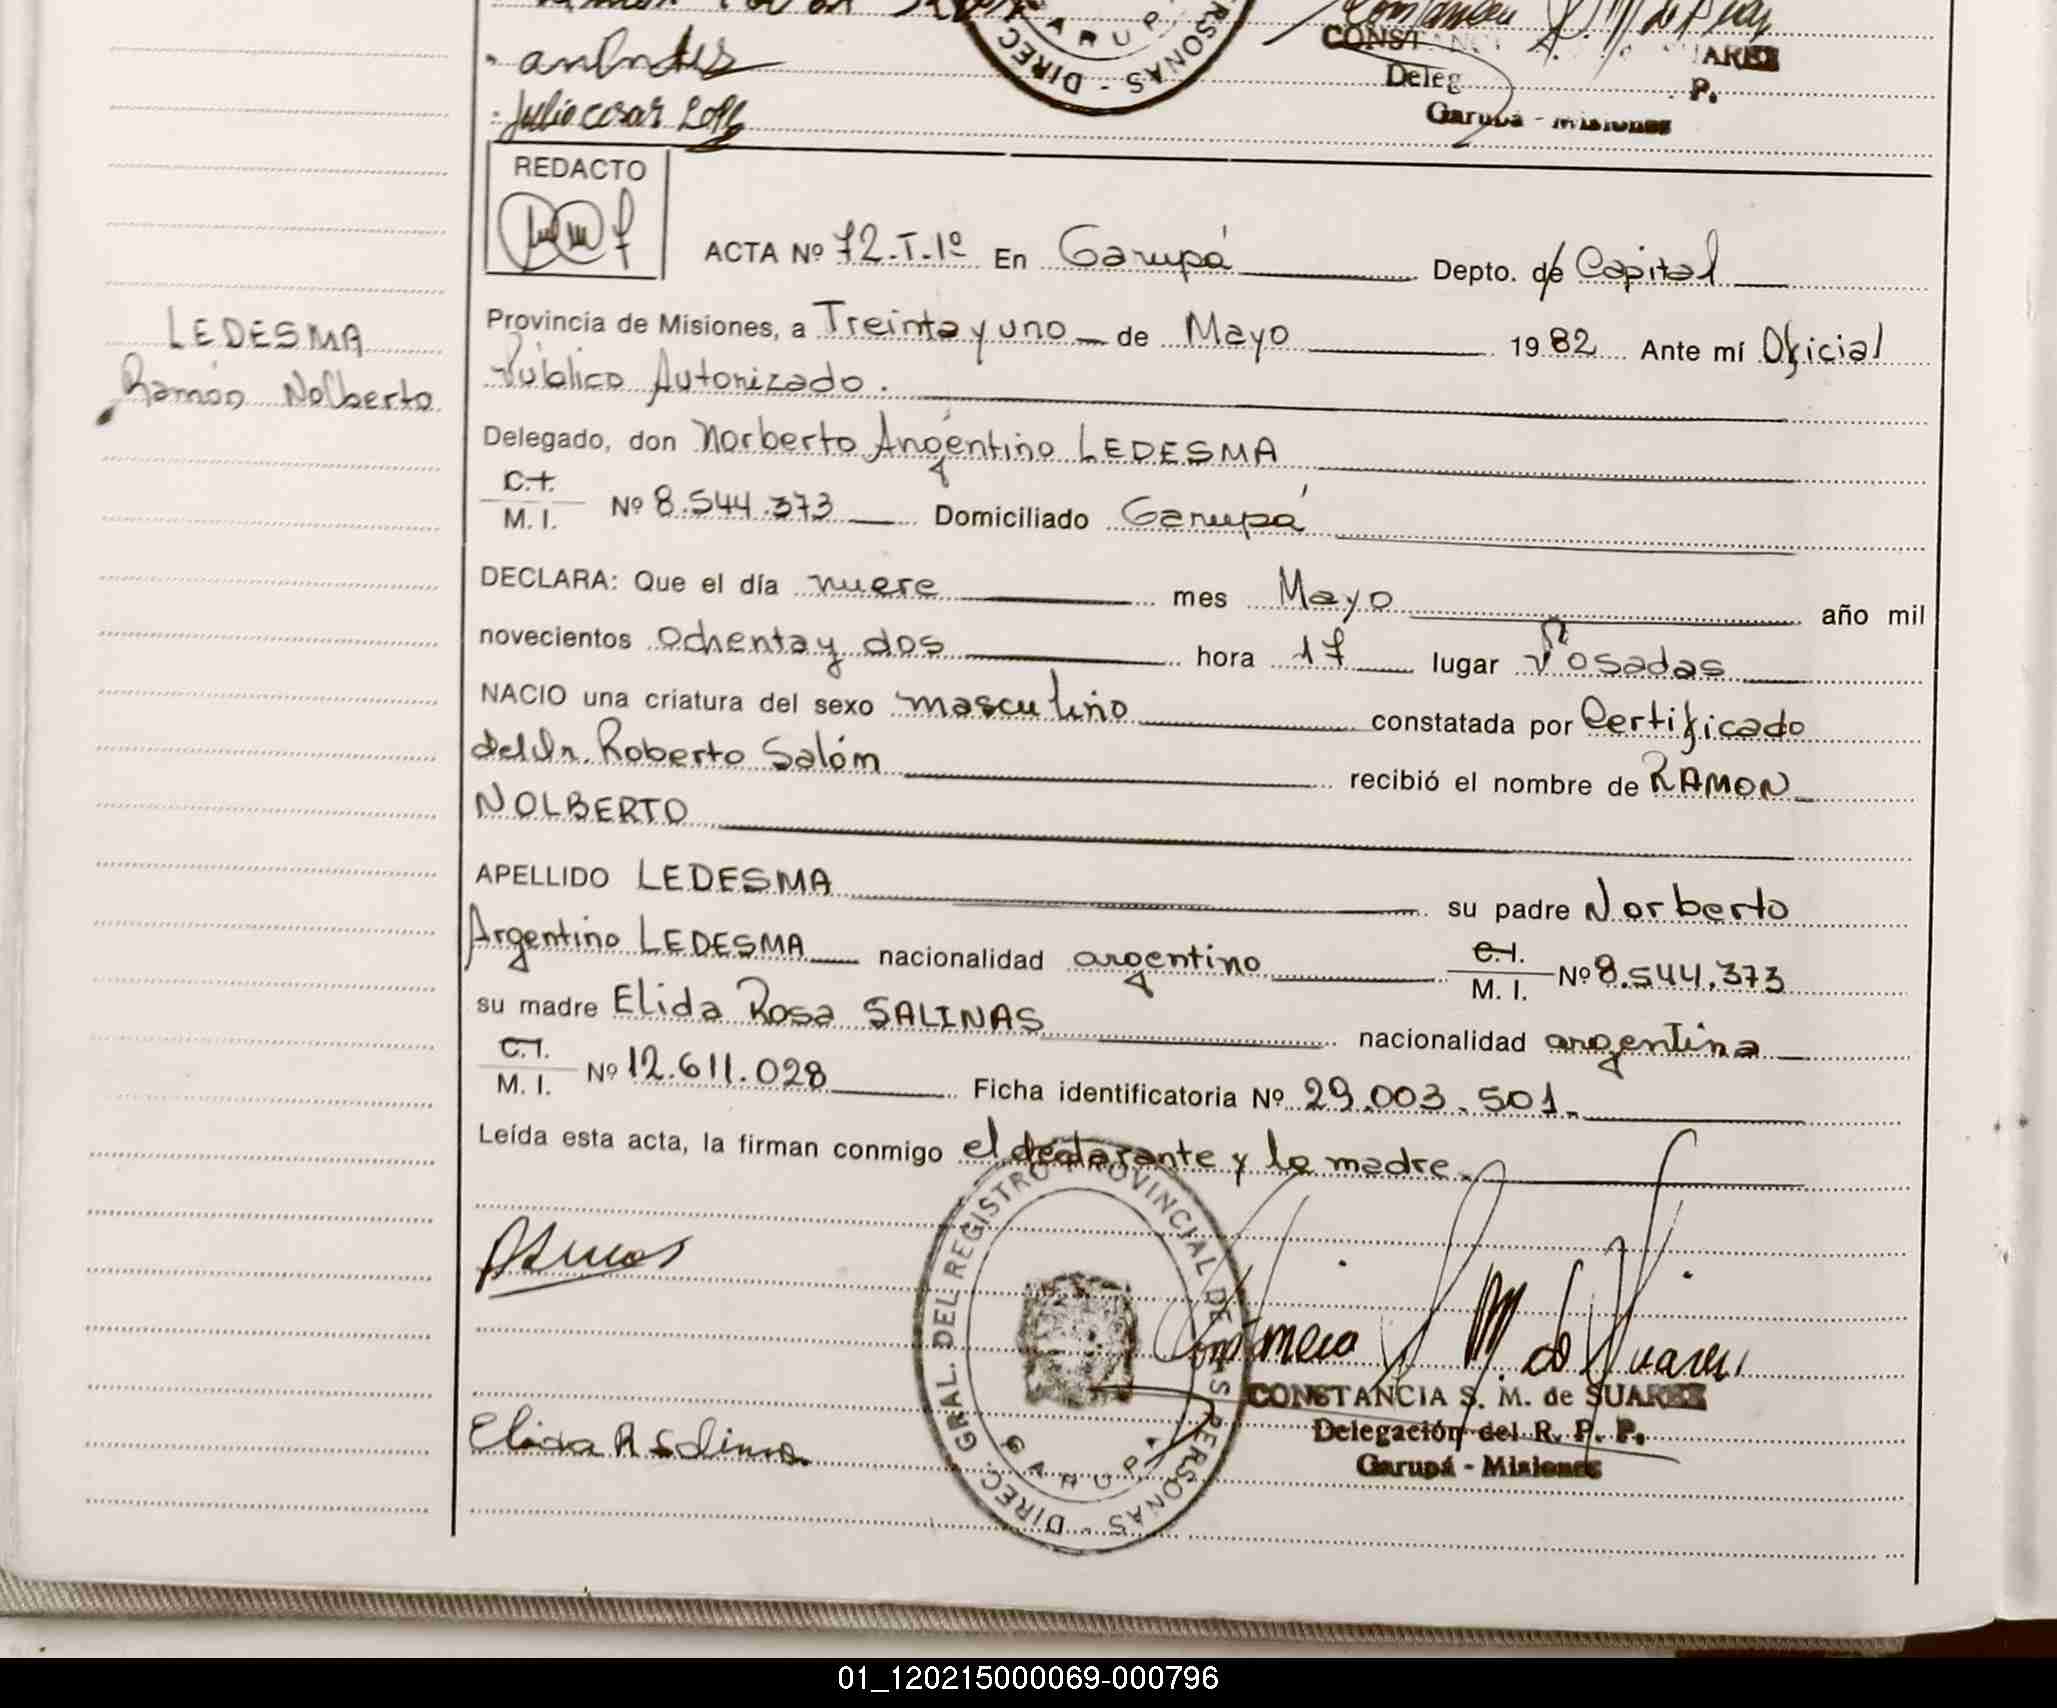 DIREC
PERSONAS
GARUP
CONST SUAREZ
Deleg P.
Julio cesar
Garupá - Misiones
REDACTO
ACTA Nº 72-T-1º En Garupá Depto. de Capital
LEDESMA
Ramón Nolberto
Provincia de Misiones, a Treinta y uno de Mayo 1982 Ante mí Oficial
Público Autorizado.
Delegado, don Norberto Argentino LEDESMA
C.I.
M. I. Nº 8.544.373 Domiciliado Garupá
DECLARA: Que el día nueve mes Mayo año mil
novecientos ochenta y dos hora 17 lugar Posadas
NACIO una criatura del sexo masculino constatada por Certificado
del Dr. Roberto Salóm recibió el nombre de RAMON
NOLBERTO
APELLIDO LEDESMA su padre Norberto
Argentino LEDESMA nacionalidad argentino C.I.
M. I. Nº 8.544.373
su madre Elida Rosa SALINAS nacionalidad argentina
C.I.
M. I. Nº 12.611.028 Ficha identificatoria Nº 29.003.501.-
Leída esta acta, la firman conmigo el declarante y la madre.
DIREC. GRAL. DEL REGISTRO PROVINCIAL DE LAS PERSONAS -
GARUPA
Constancia S. M. de Suarez
CONSTANCIA S. M. de SUAREZ
Delegación del R. P. P.
Garupá - Misiones
Elida R Salinas
01_120215000069-000796